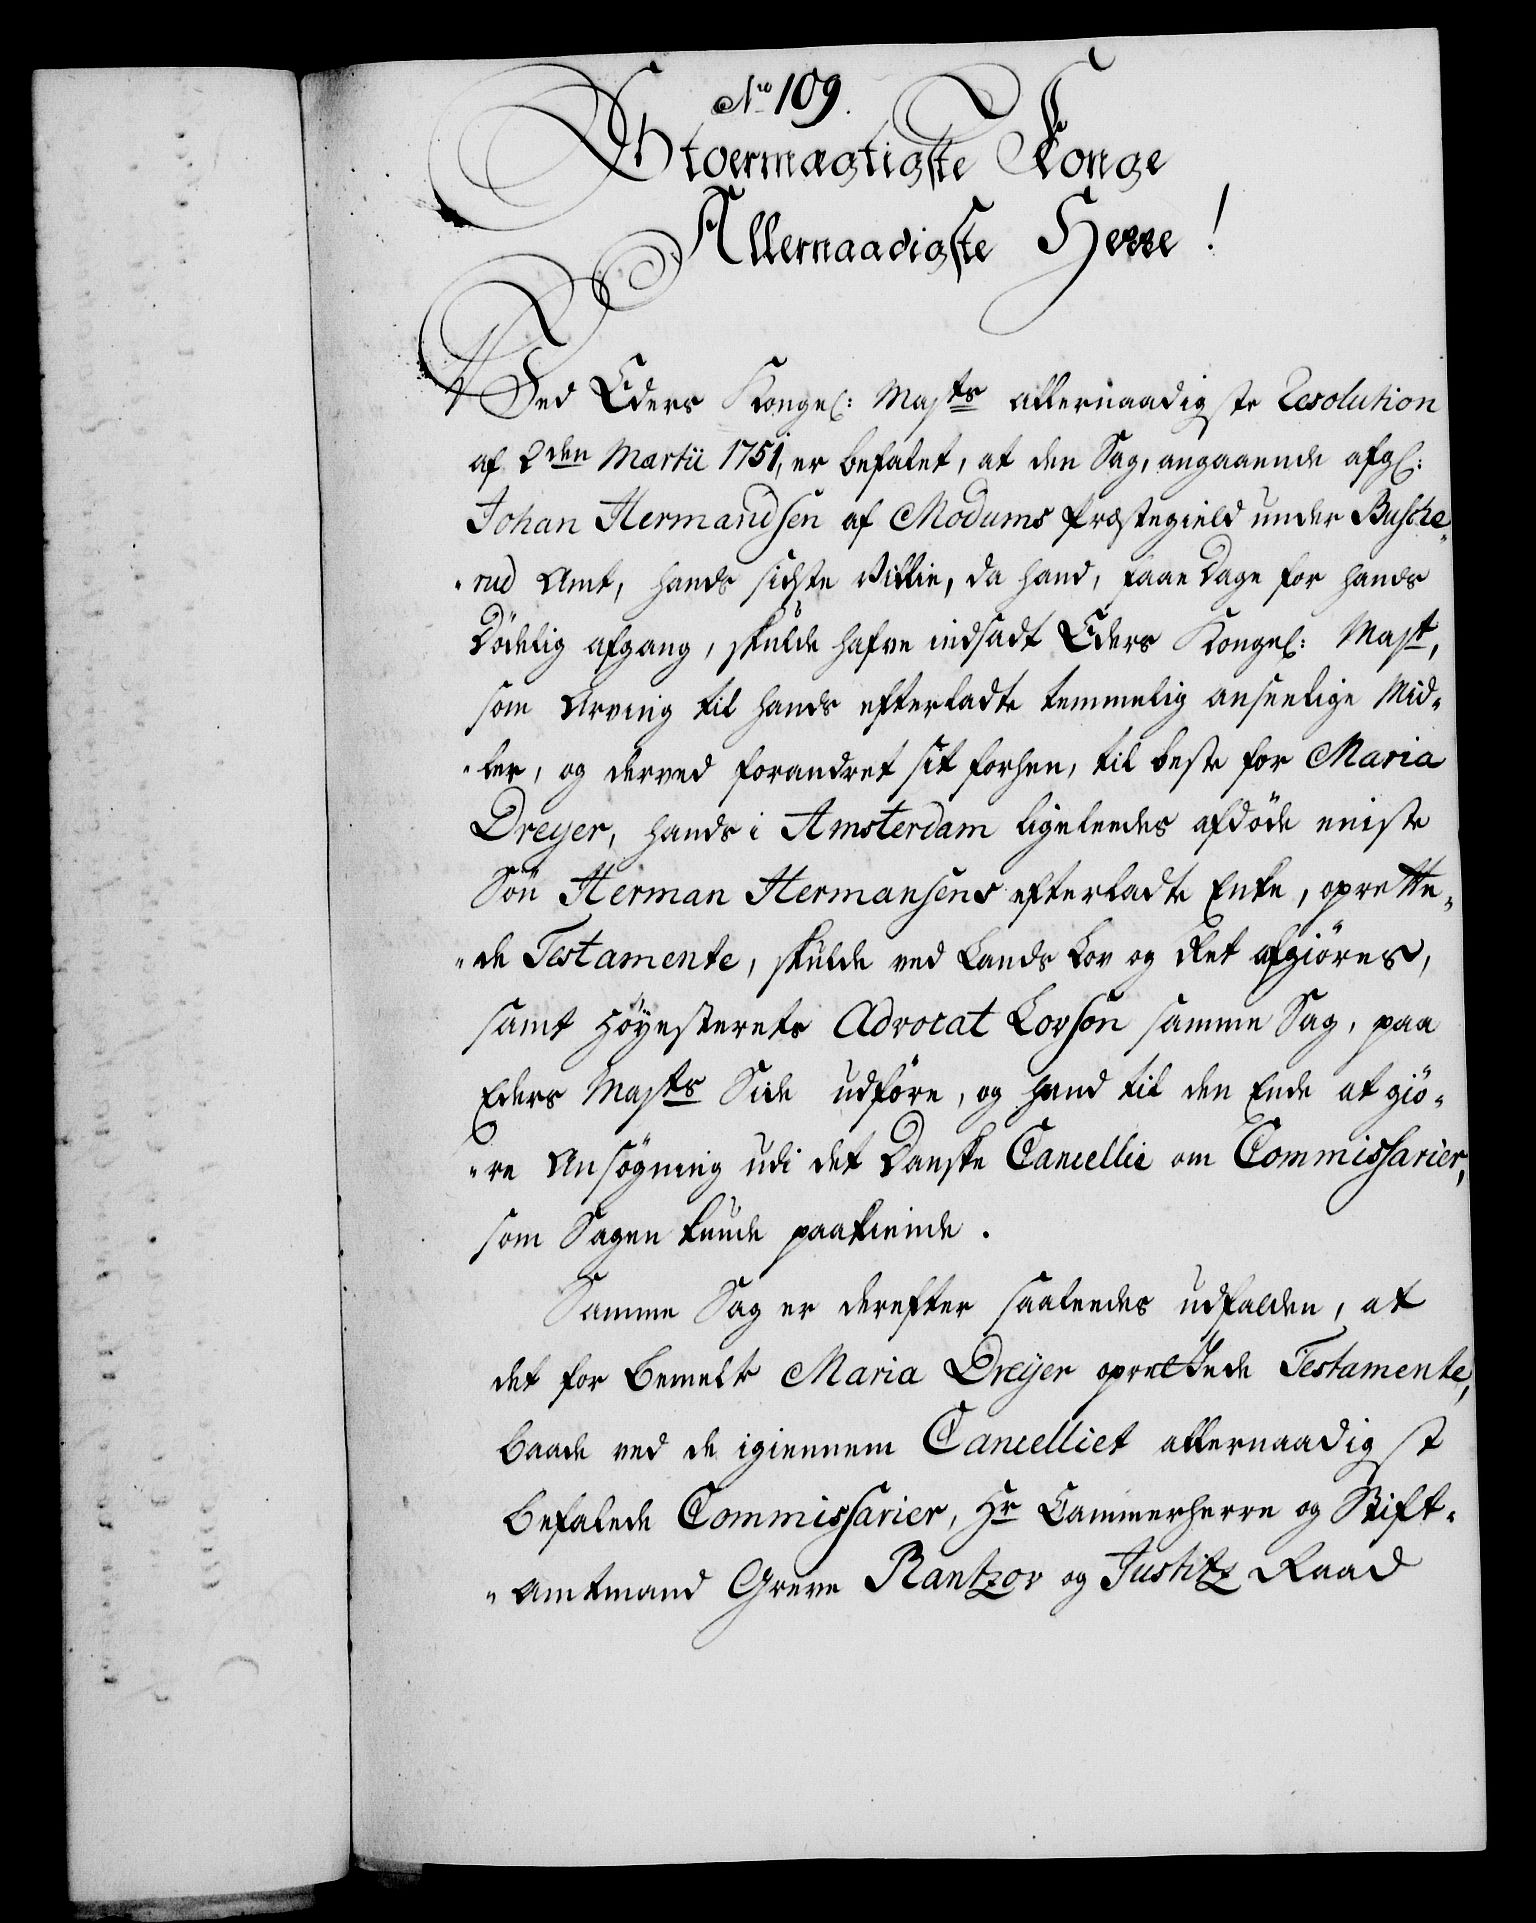 No 109.
Stoermægtigste Konge
Allernaadigste Herre!
Ved Eders Kongel: Majts allernaadigste Resolution
af 2den Martii 1751, er befalet, at den Sag, angaaende afgl:
Johan Hermandsen af Modums Præstegield under Busche-
-rud Amt, hands sidste Villie, da hand, faae Dage for hands
Dödelig afgang, skulde hafve indsadt Eders Kongel: Majt,
som Arving til hands efterladte temmelig anseelige Mid-
-ler, og derved forandret sit forhen, til beste for Maria
Dreyer, hands i Amsterdam ligeleedes afdöde eeniste
Sön Herman Hermansens efterladte Enke, oprette-
-de Testamente, skulde ved Lands Lov og Ret afgiöres,
samt Höyesterets Advocat Lovson samme Sag, paa
Eders Majts Side udföre, og hand til den Ende at giö-
-re Ansögning udi det Danske Cancellie om Commissarier,
som Sagen kunde paakiende.
Samme Sag er derefter saaleedes udfalden, at
det for bemelte Maria Dreyer oprettede Testamente,
baade ved de igiennem Cancelliet allernaadigst
befalede Commissarier, Hr Cammerherre og Stift-
-Amtmand Greve Rantzov og Justitz Raad